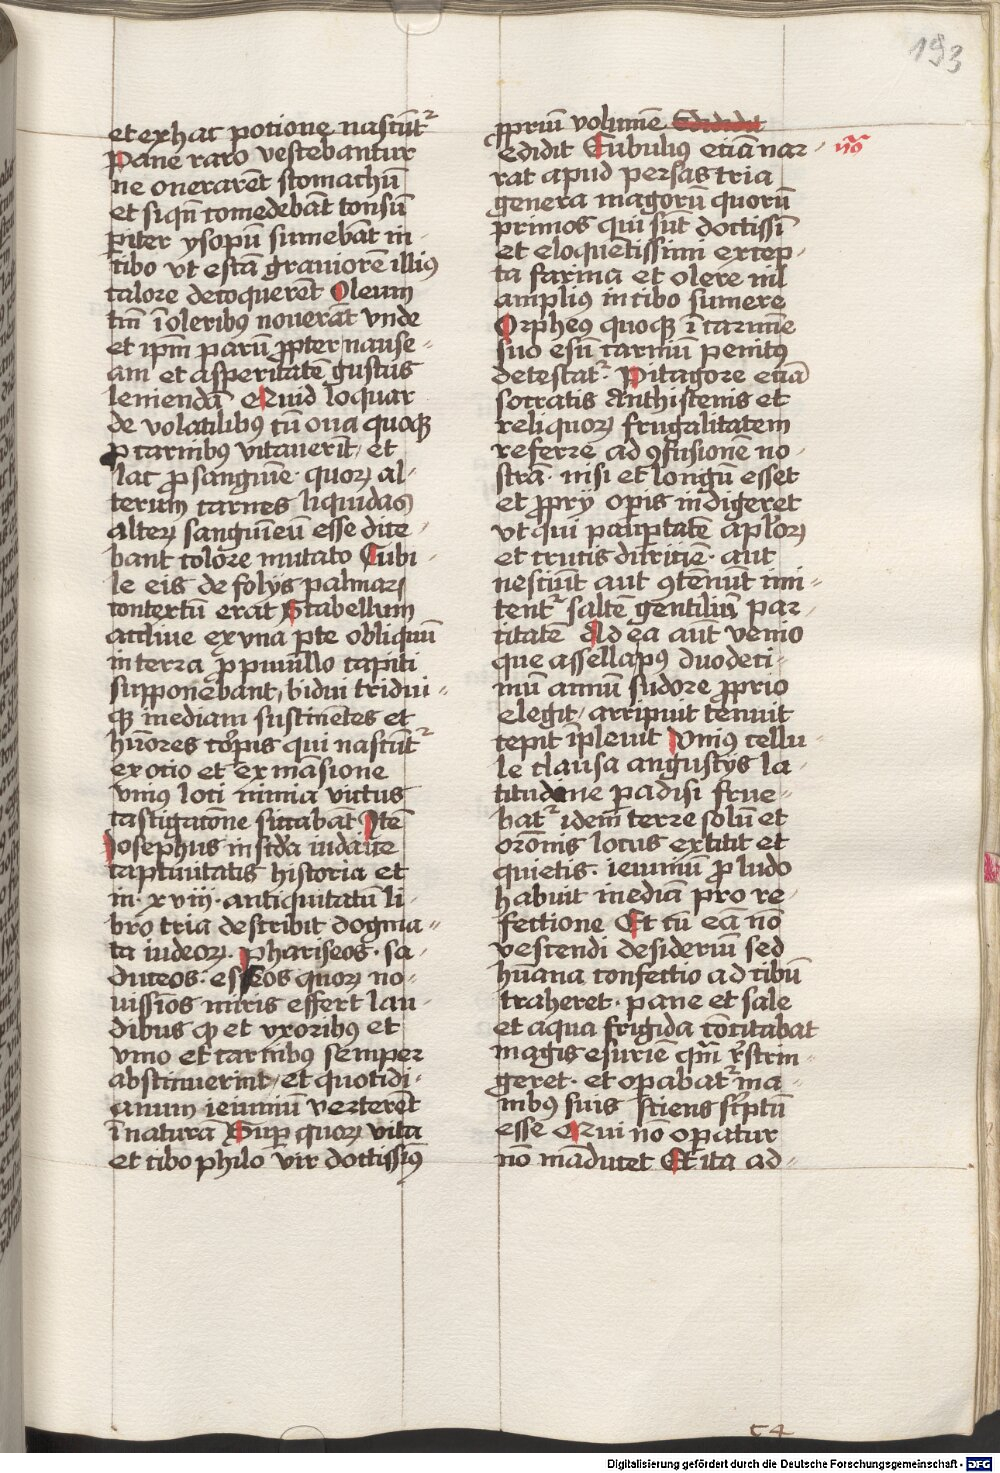 193
et ex hac potione nascūt᷑
Pane raro vescebantur
ne onerarēt stomachū
et siqn̄ comedebāt tonsū
pit̄er ysopū sumebāt in
cibo vt escā grauiorē illiꝰ
calore decoquerēt Oleum
tm̄ ī oleribꝰ nouerāt vnde
et ip̄m parū ꝓpter nause⸗
am et asperitatē gustus
leniendā Quid loquar
de volatilibꝰ cū oua quoqꝫ
ꝓ carnibꝰ vitauerīt et
lac ꝓ sanguīe · quoꝝ al⸗
terum carnes liquidas
alteꝝ sanguīeu esse dice⸗
bant colore mutato Cubi⸗
le eis de folijs palmaꝝ
contextū erat Scabellum
accliue ex vna ꝑte obliquū
in terra ꝓ puiullo capiti
supponebant bidui tridui⸗
qꝫ inediam sustinētes et
hūores corꝑis qui nascūt᷑
ex ocio et ex māsione
vniꝰ loci nimia victus
castigacōne siccabat Itē
Iosephus in scd̓a iudaice
captiuitatis historia et
in · xviij · antiquitatū li⸗
bro tria describit dogma⸗
ta iudeoꝝ · Phariseos · sa⸗
duceos · esseos quoꝝ no⸗
uissīos miris effert lau⸗
dibus ꝙ et vxoribꝰ et
vino et carnibꝰ semper
abstinuerint et quotidi⸗
anum ieiuniū verterēt
ī naturā Suꝑ quoꝝ vita
et cibo philo vir doctissiꝰ
ꝓpriū volumē Edididit
edidit Eubuliꝰ eciā nar⸗
rat apud persas tria
genera magorū quorū
primos qui sūt doctissī
et eloquētissimi excep⸗
ta farina et olere nil
ampliꝰ in cibo sumere
Orpheꝰ quoqꝫ ī carmīe
suo esū carniū penitꝰ
detestat᷑ · Pitagore eciā
socratis Anthistenis et
reliquoꝝ frugalitatem
referre ad ꝯfusionē no⸗
strā · nisi et longū esset
et ꝓprij oꝑis indigeret
vt qui paupṫatē apl̓oꝝ
et crucis duriciē · aut
nesciūt aut ꝯtēnūt imi⸗
tent᷑ saltē gentiliū par⸗
citatē Ad ea aūt venio
que assellapꝰ duodeci⸗
mū annū sudore ꝓprio
elegit arripuit tenuit
cepit īpleuit Vniꝰ cellu⸗
le clausa angustijs la⸗
titudine ꝑadisi frue⸗
bat᷑ idem terre solū et
orōnis locus extitit et
quietis · ieiuniū ꝓ ludo
habuit inediā pro re⸗
fectione Et cū eā nō
vescendi desideriū sed
hūana confectio ad cibū
traheret · pane et sale
et aqua frigida cōcitabat
magis esuriē qm̄ r̄strin⸗
geret · et oꝑabat᷑ ma⸗
nibꝰ suis sciens sc̓ptū
esse Qui nō oꝑatur
nō māducet Et ita ad⸗
c4
Digitalisierung gefördert durch die Deutsche Forschungsgemeinschaft - DFG